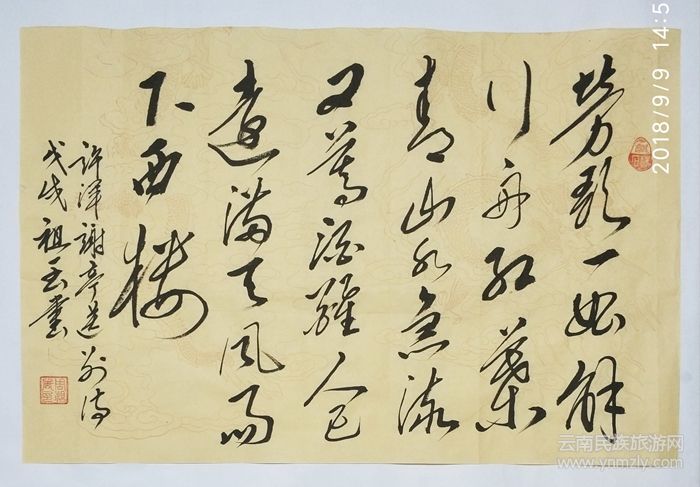 勞歌一曲解
行舟紅葉
青山水急流
日暮酒醒人已
遠滿天風雨
下西樓
許渾謝亭送别诗
戊戌祖玉書
2018/9/9 14:5
云南民族旅游网
www.ynmzly.com